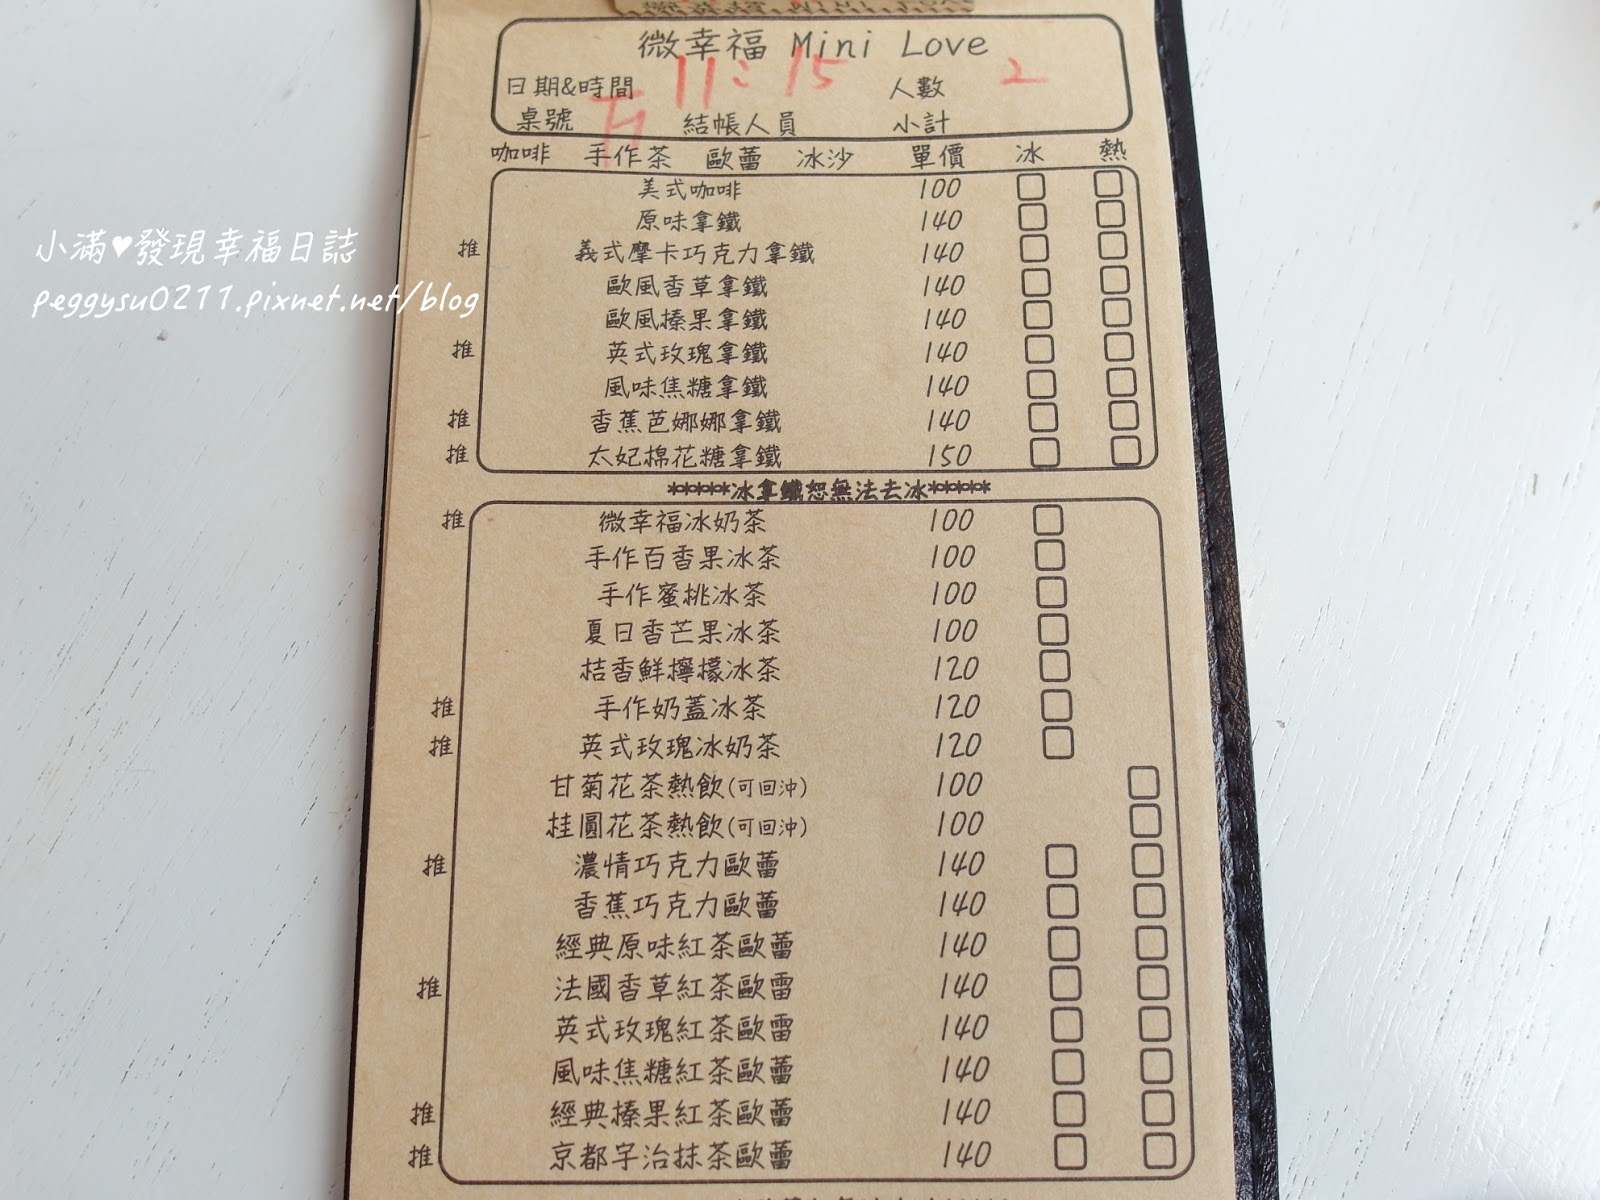 微幸福 Mini Love
日期&時間 11:15 人數 2
桌號 結帳人員 小計
咖啡 手作茶 歐蕾 冰沙 單價 冰 熱
美式咖啡 100
原味拿鐵 140
推 義式摩卡巧克力拿鐵 140
歐風香草拿鐵 140
歐風榛果拿鐵 140
推 英式玫瑰拿鐵 140
風味焦糖拿鐵 140
推 香蕉芭娜娜拿鐵 140
推 太妃棉花糖拿鐵 150
*****冰拿鐵恕無法去冰*****
推 微幸福冰奶茶 100
手作百香果冰茶 100
手作蜜桃冰茶 100
夏日香芒果冰茶 100
桔香鮮檸檬冰茶 120
推 手作奶蓋冰茶 120
推 英式玫瑰冰奶茶 120
甘菊花茶熱飲(可回沖) 100
桂圓花茶熱飲(可回沖) 100
推 濃情巧克力歐蕾 140
香蕉巧克力歐蕾 140
經典原味紅茶歐蕾 140
推 法國香草紅茶歐雷 140
英式玫瑰紅茶歐雷 140
風味焦糖紅茶歐蕾 140
推 經典榛果紅茶歐蕾 140
推 京都宇治抹茶歐蕾 140
小滿♥發現幸福日誌
peggysu0211.pixnet.net/blog